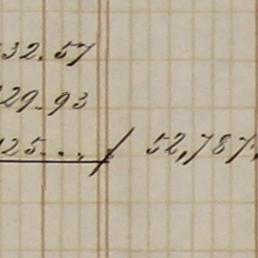 532.57
429.93
125... / 52,787.